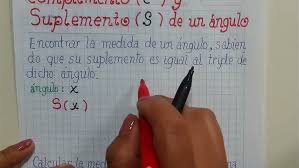 Complemento (C) y
Suplemento (S) de un ángulo
Encontrar la medida de un ángulo, sabien
do que su suplemento es igual al triple de
dicho ángulo.
ángulo: x
S(x)
Calcular la medida